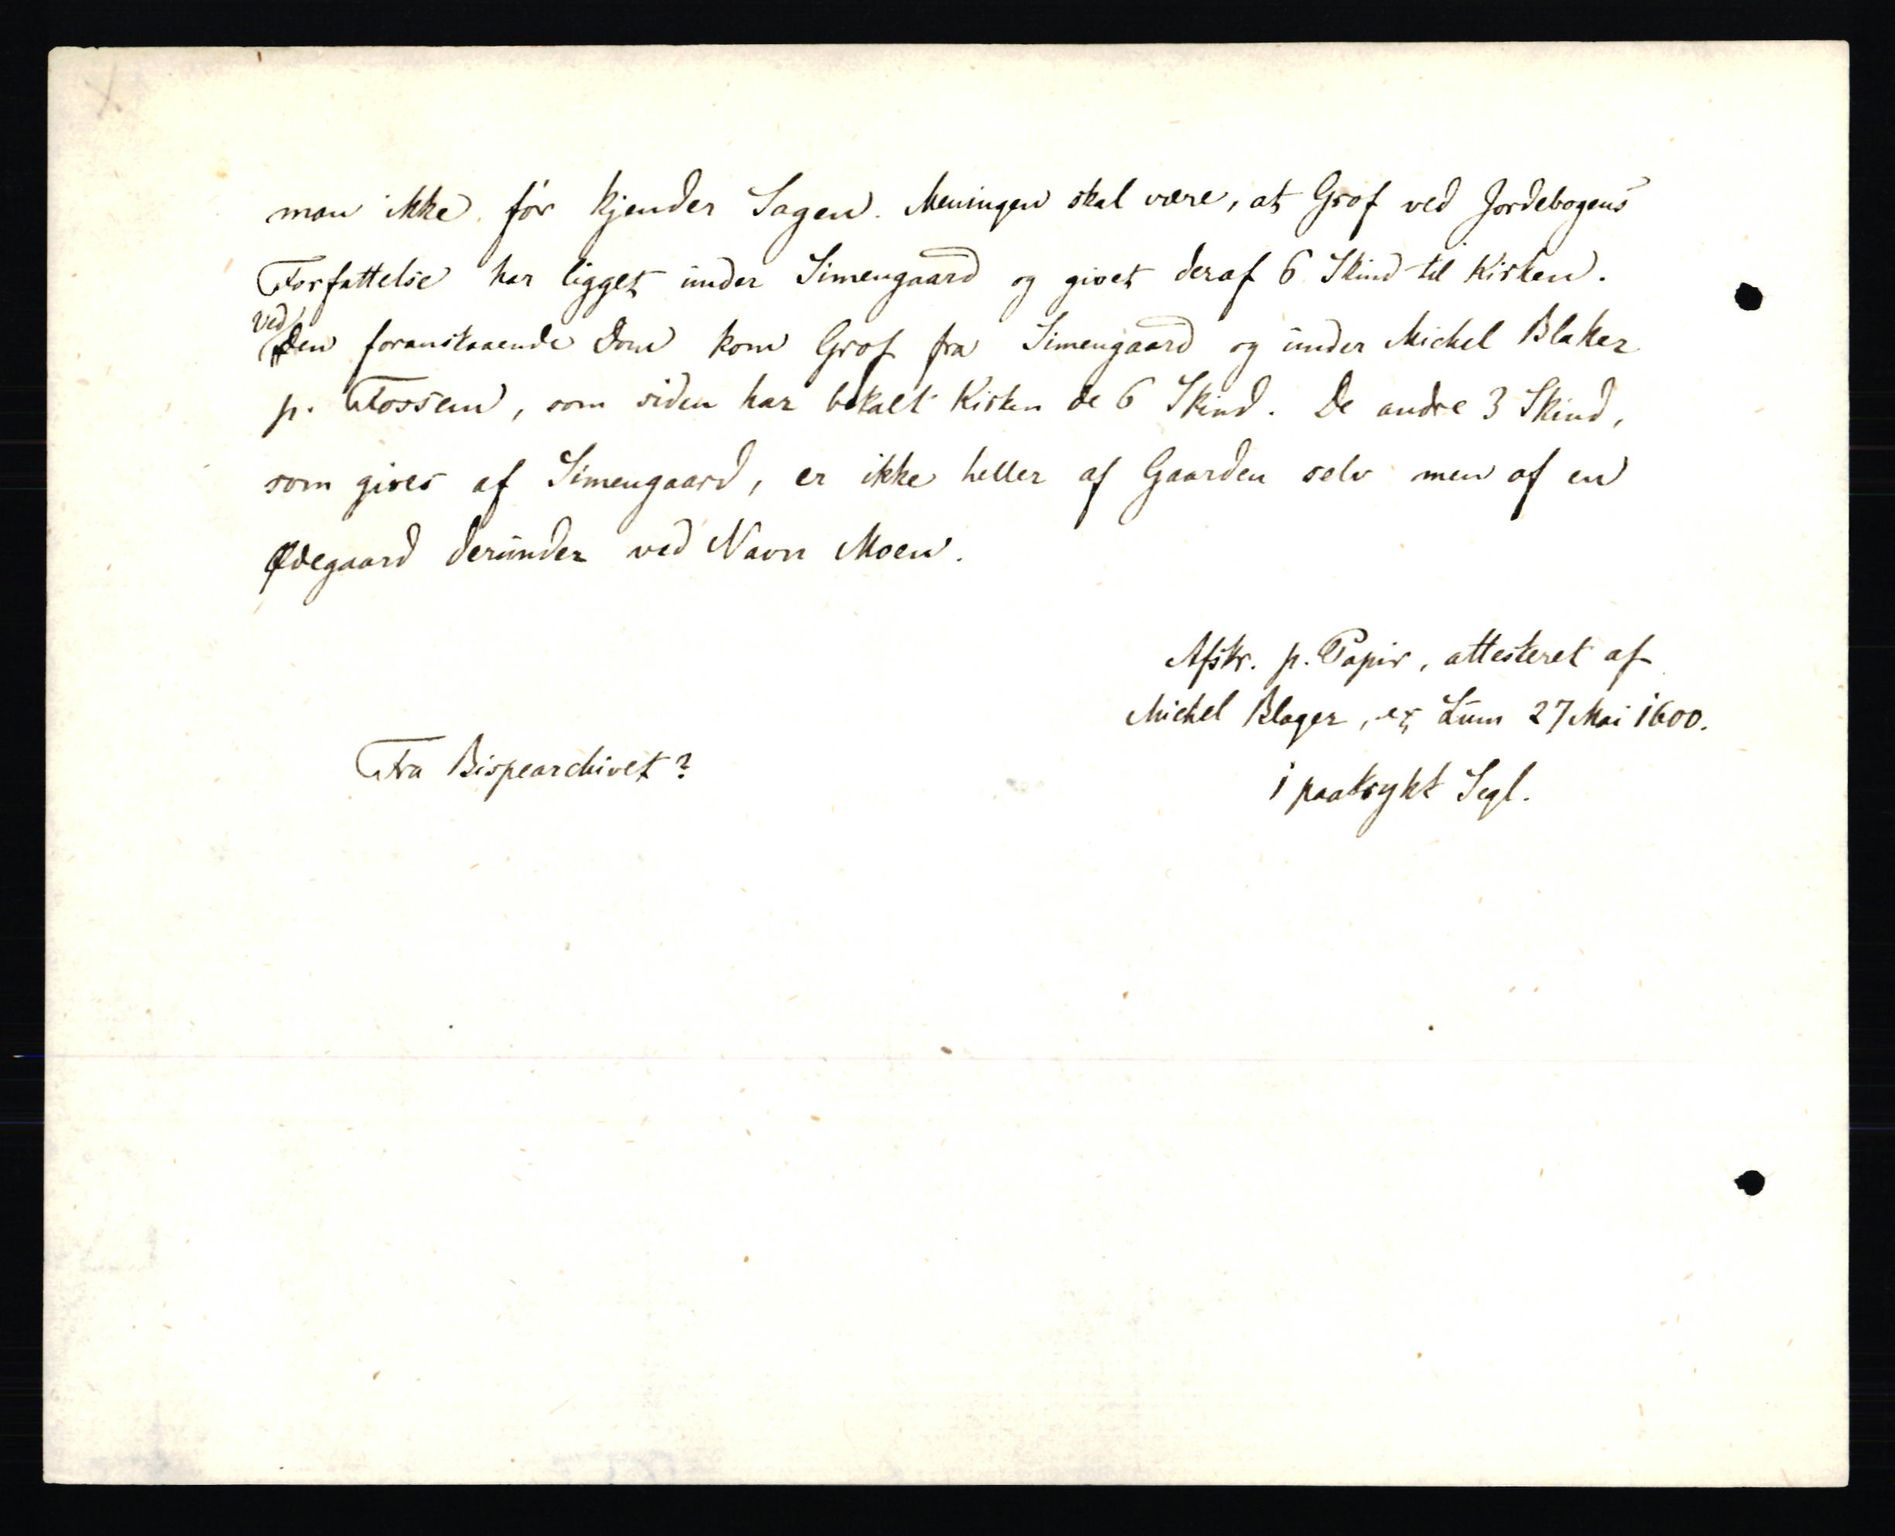 man ikke før kjender Sagen. Meningen skal være, at Grof ved Jordebogens
Forfattelse har ligget under Simengaard og givet deraf 6 Skind til Kirken.
Ved
den foranstaaende Dom kom Grof fra Simengaard og under Michel Blaker
p. Fossem, som siden har betalt Kirken de 6 Skind. De andre 3 Skind,
som gives af Simengaard, er ikke heller af Gaarden selv men af en
Ødegaard derunder ved Navn Moen.
Afskr. p. Papir, attesteret af
Michel Blager, Lum 27 Mai 1600.
Fra Bispearchivet?
1 paatrykt Segl.